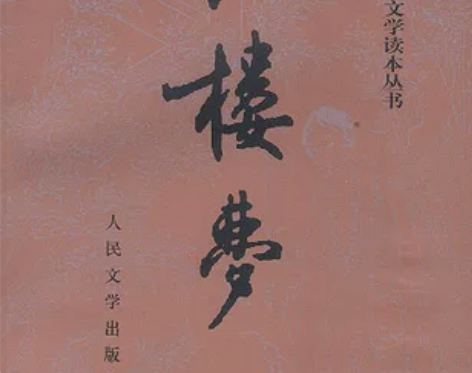 文学读本丛书
楼梦
人民文学出版